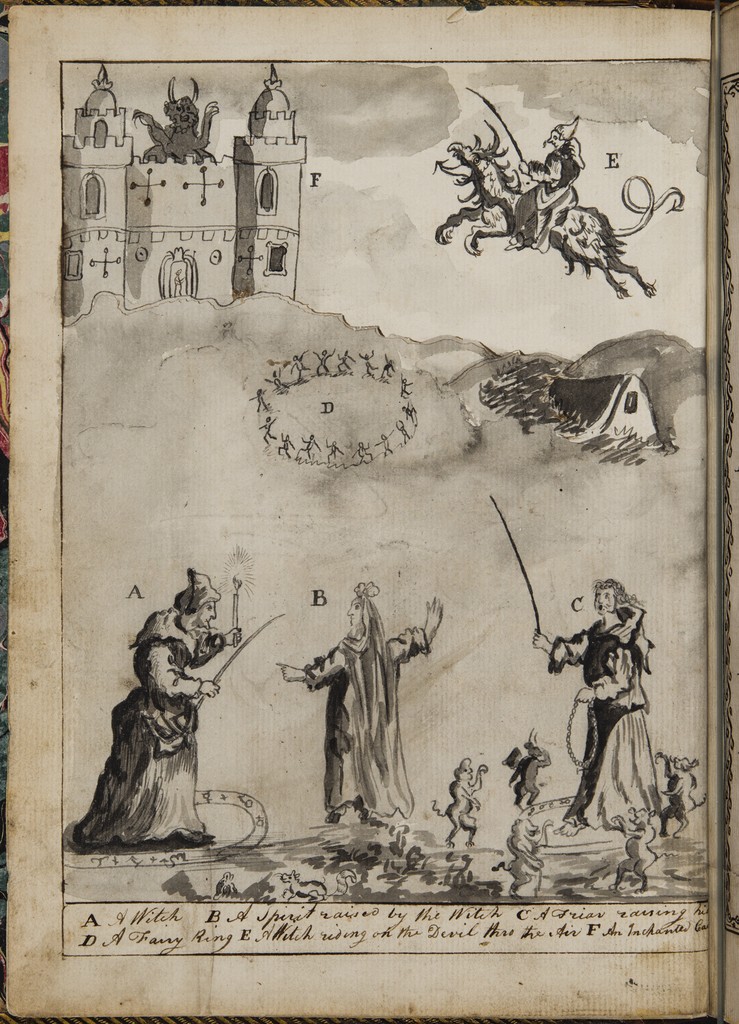 F
E
D
A
B
C
A A Witch B A Spirit raised by the Witch C A Friar raising hi
D A Fairy Ring E A Witch riding on the Devil thro the Air F An Inchanted Ca